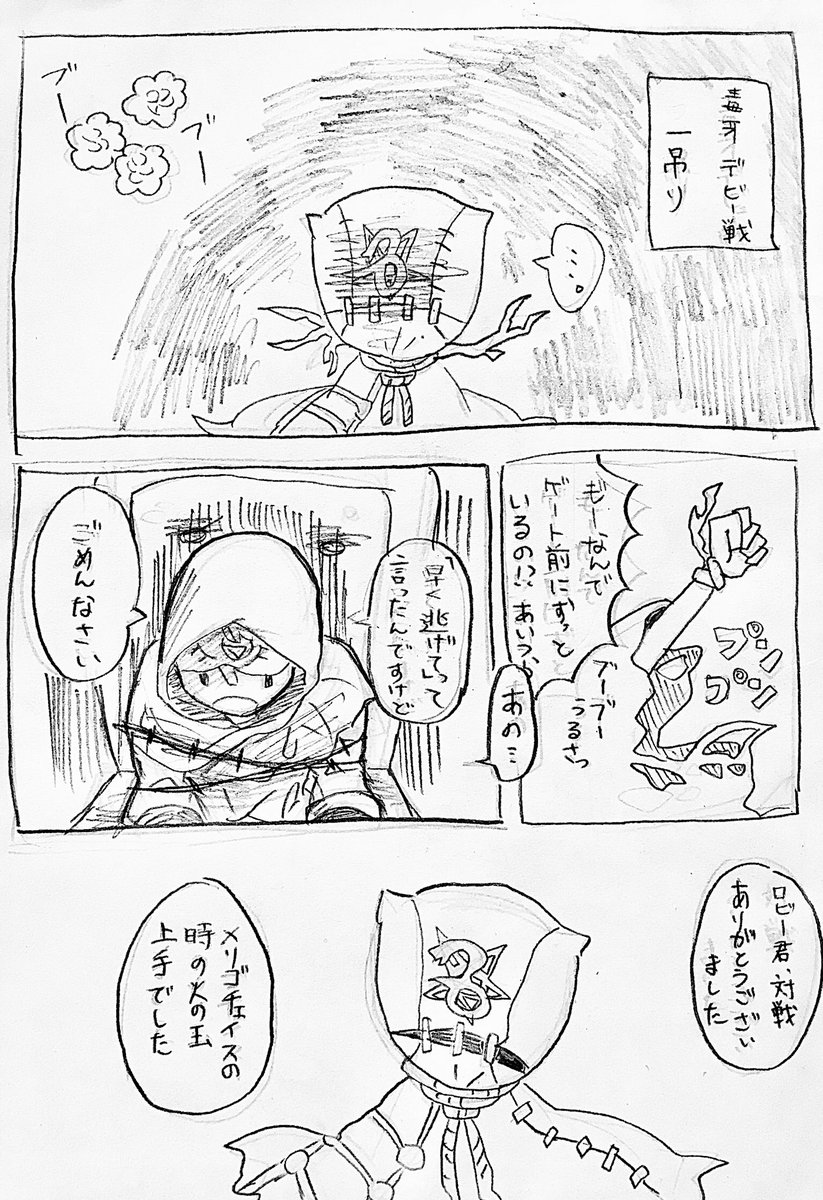 毒牙 デビー戦
一吊り
…。
ブー
ブー
もーなんで
ゲート前にずっと
いるの!? あいつら
ブーブー
うるさっ
プン
プン
あの…
「早く逃げて」って
言ったんですけど
ごめんなさい
ロビー君、対戦
ありがとうござい
ました
メリゴチェイスの
時の火の玉
上手でした